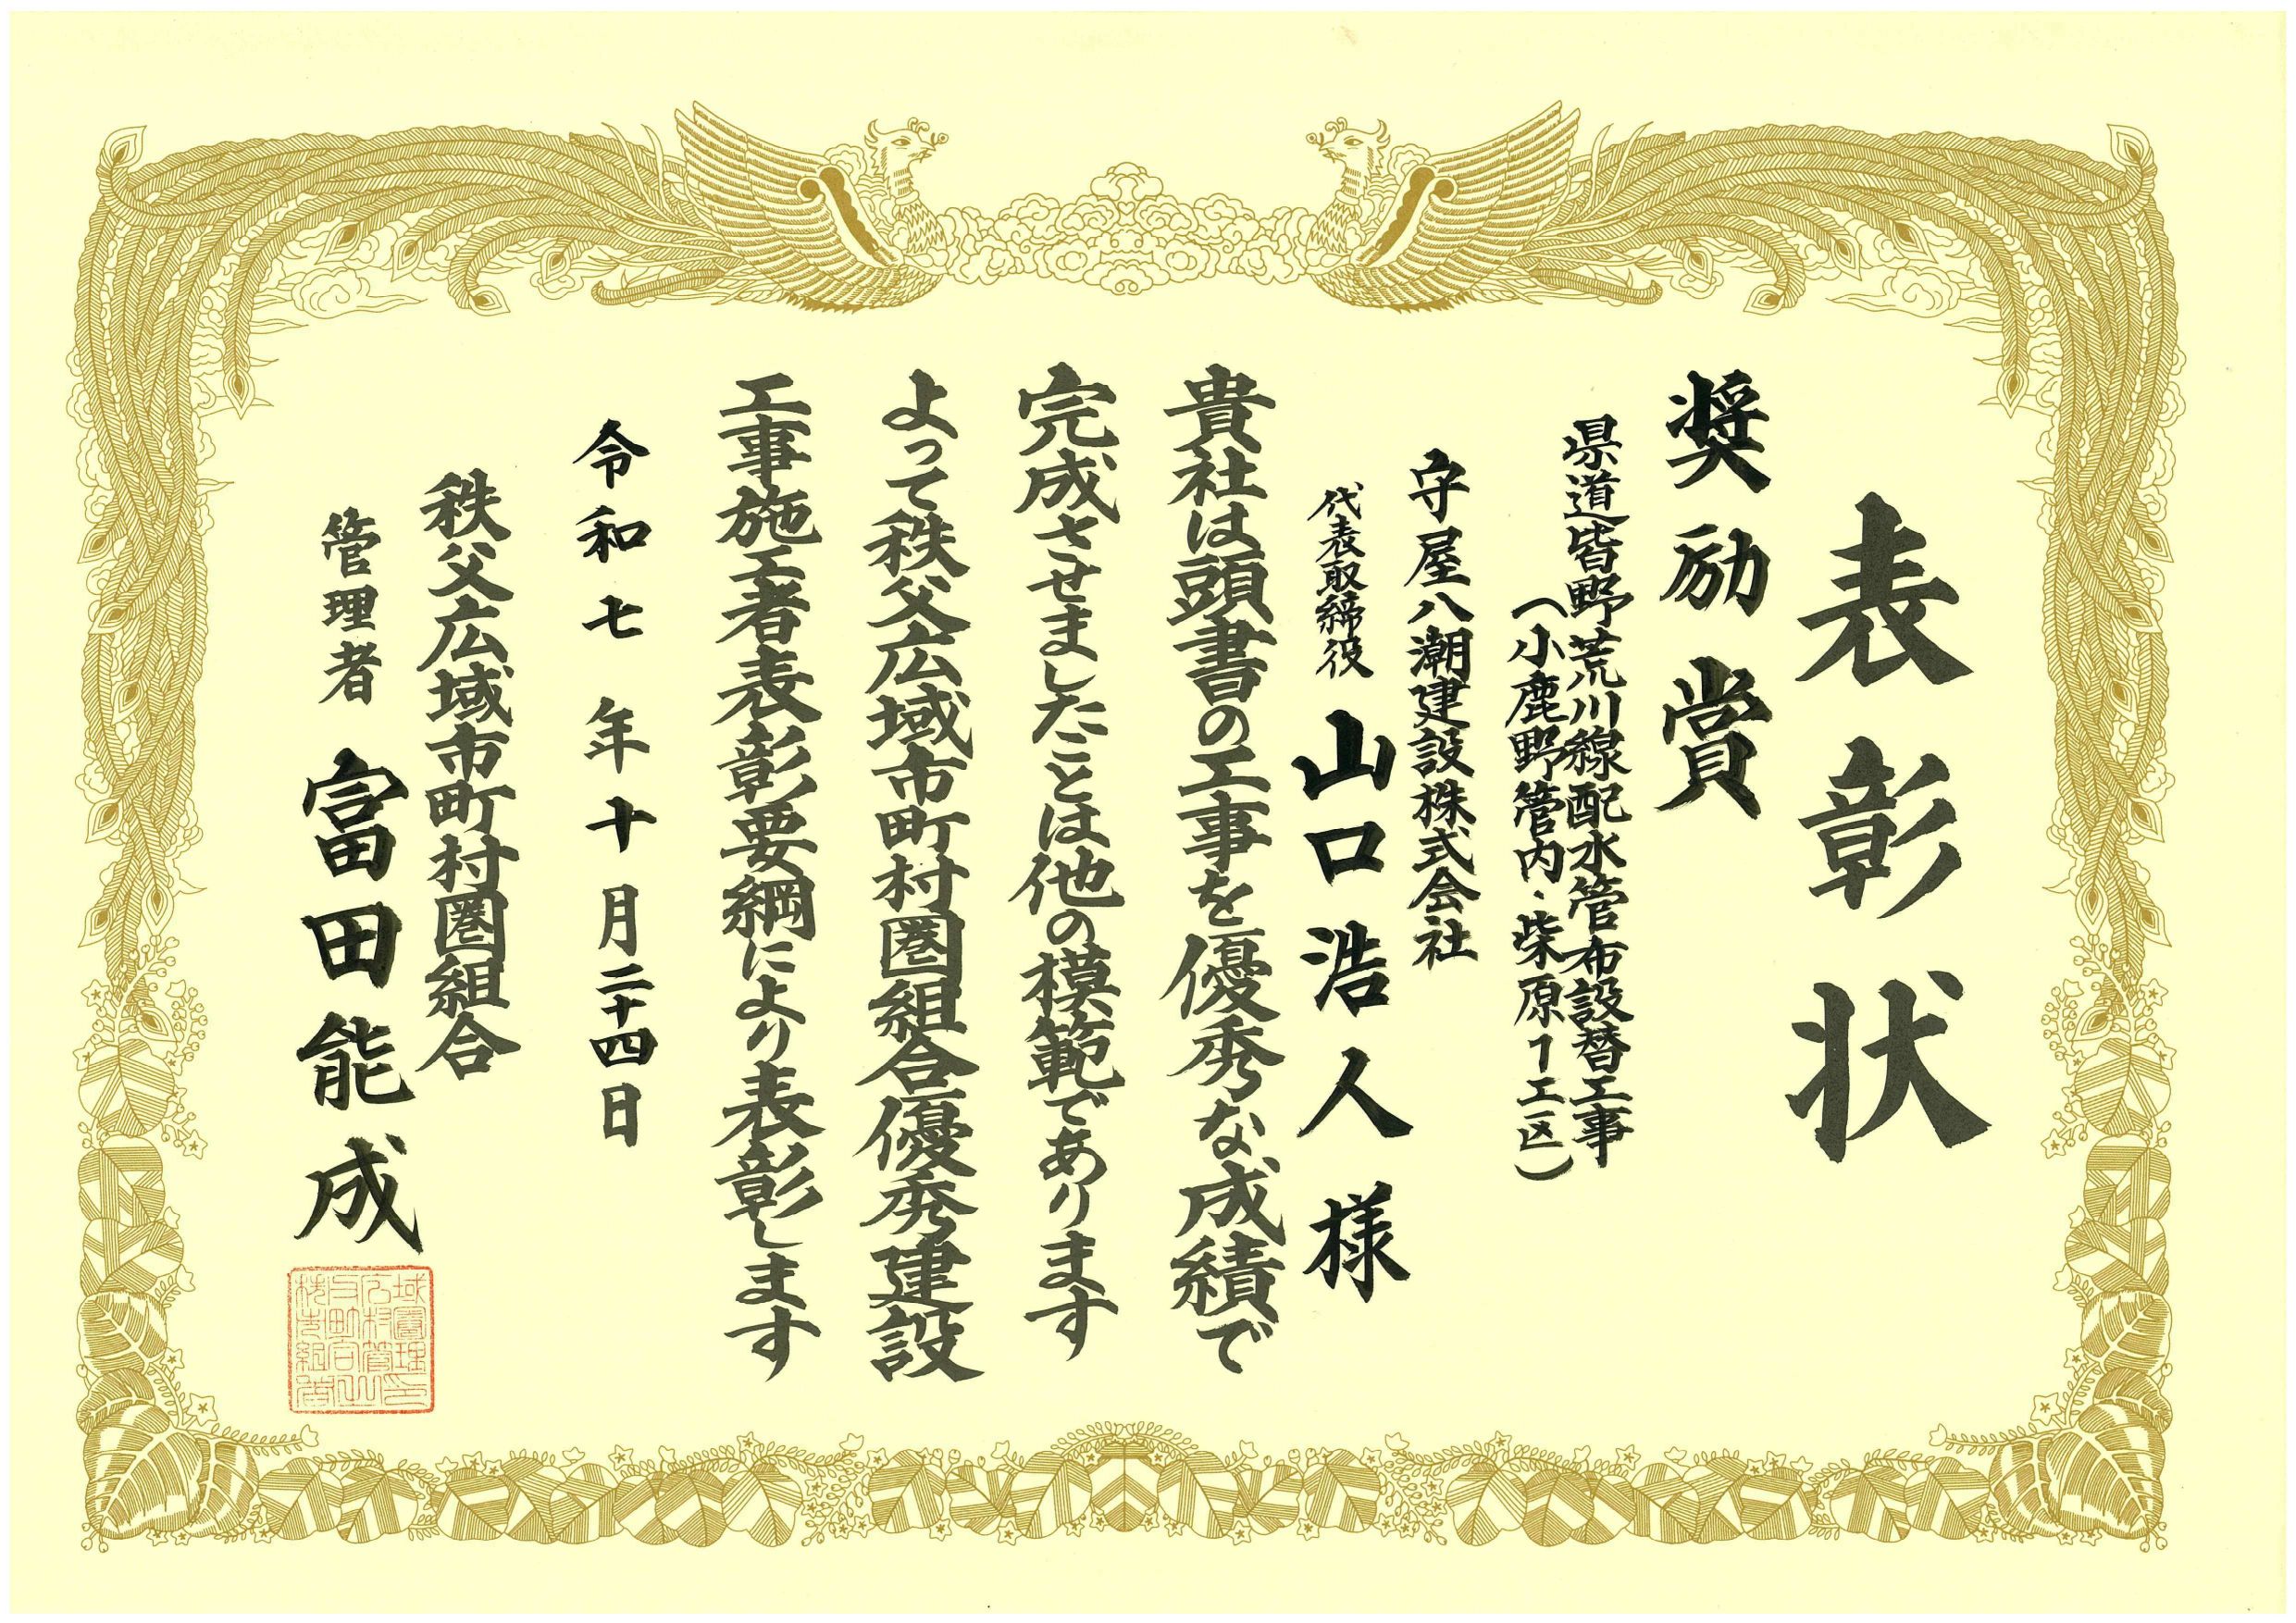 表彰状
奨励賞
県道皆野荒川線配水管布設替工事
(小鹿野管内・柴原1工区)
守屋八潮建設株式会社
代表取締役 山口浩人様
貴社は頭書の工事を優秀な成績で
完成させましたことは他の模範であります
よって秩父広域市町村圏組合優秀建設
工事施工者表彰要綱により表彰します
令和七年十月二十四日
秩父広域市町村圏組合
管理者 富田能成